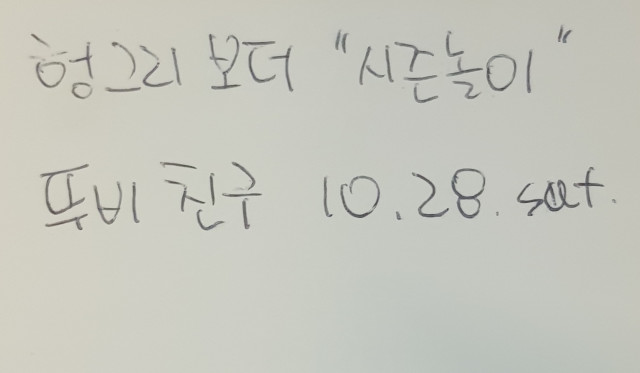 헝그리 보더 "시즌놀이"
뚜비 친구 10.28. sat.